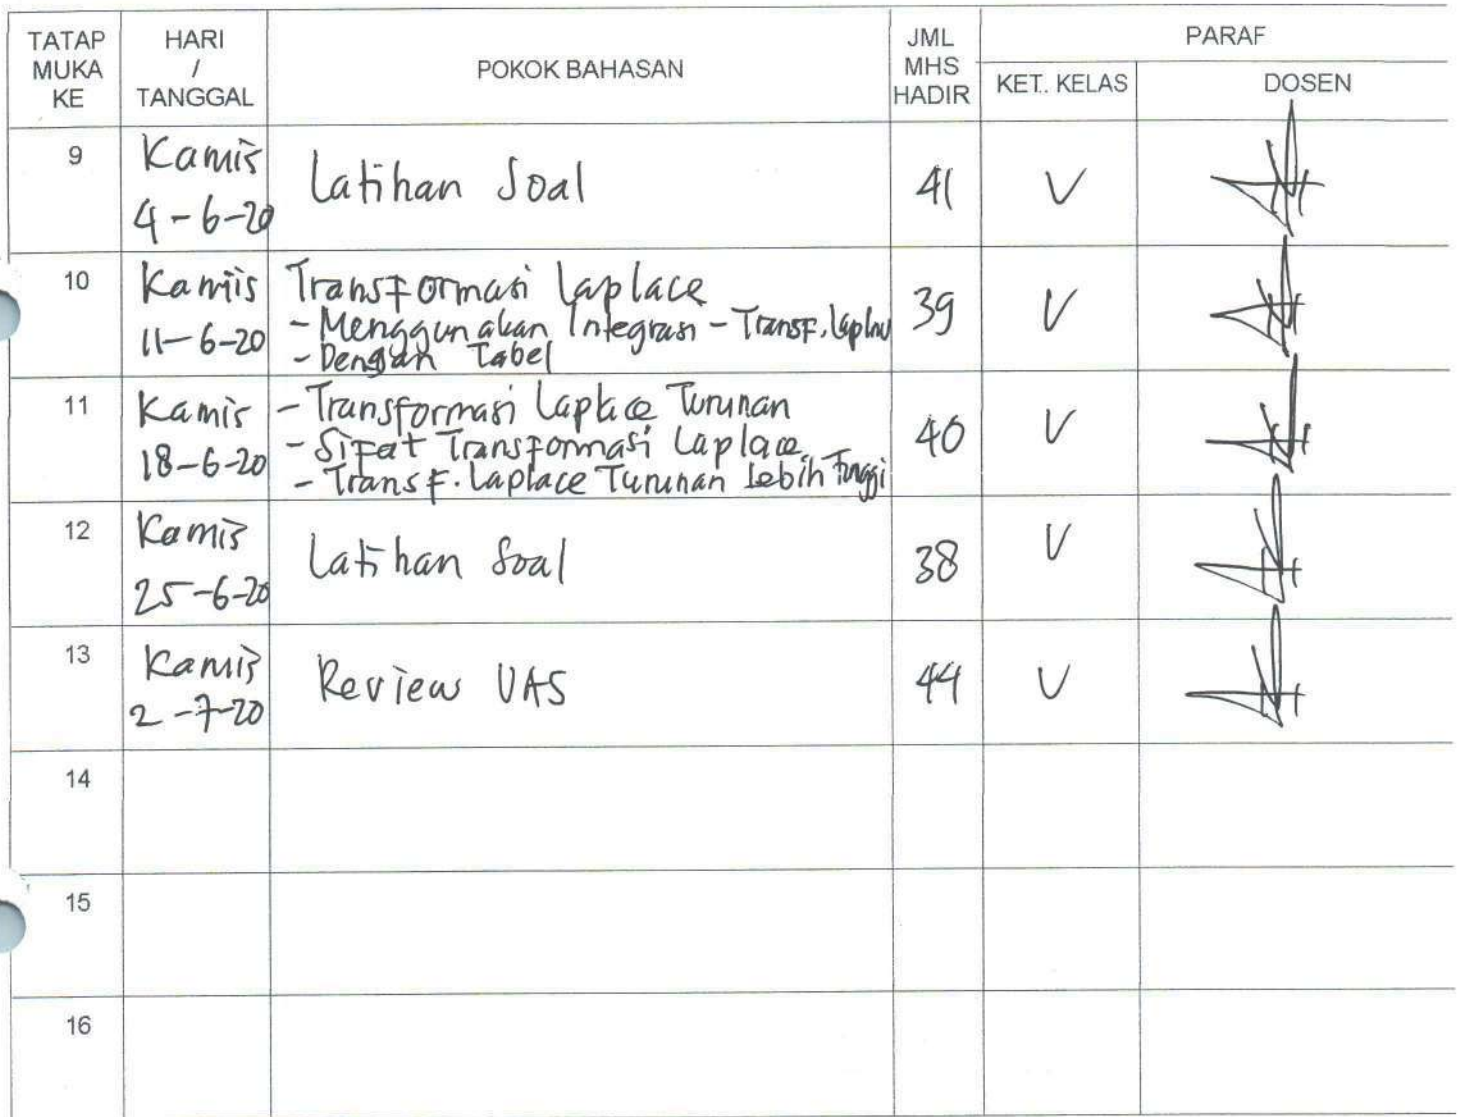 TATAP MUKA KE
HARI / TANGGAL
POKOK BAHASAN
JML MHS HADIR
PARAF
KET. KELAS
DOSEN
9
Kamis
4-6-20
Latihan Soal
41
V
10
Kamis
11-6-20
Transformasi Laplace
- Menggunakan Integrasi - Transf. Laplace
- Dengan Tabel
39
V
11
Kamis
18-6-20
- Transformasi Laplace Turunan
- Sifat Transformasi Laplace
- Transf. Laplace Turunan Lebih Tinggi
40
V
12
Kamis
25-6-20
Latihan Soal
38
V
13
Kamis
2-7-20
Review UAS
44
V
14
15
16